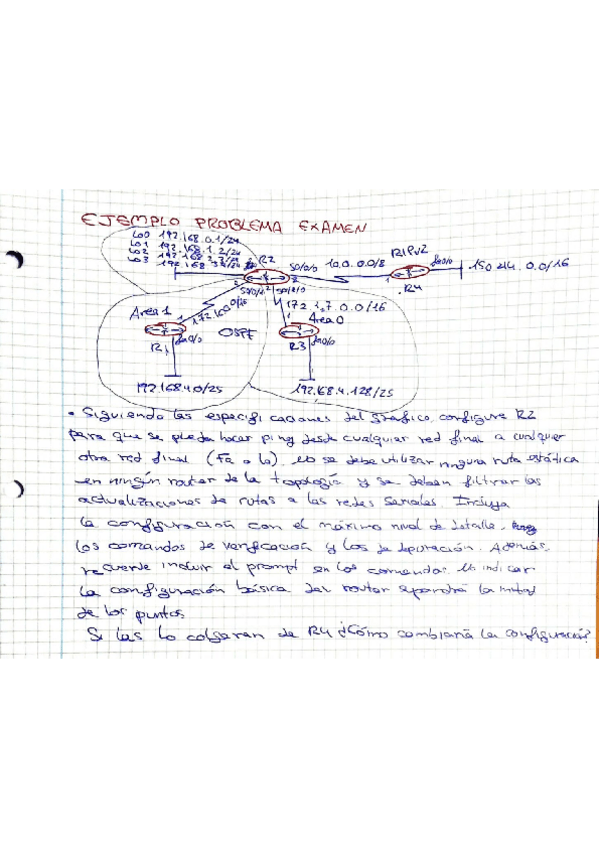 EJEMPLO PROBLEMA EXAMEN
Lo0 192.168.0.1/24
Lo1 192.168.1.2/24
Lo2 192.168.2.
Lo3 192.168.3.
R2
S0/0/0
10.0.0.0/8
RIPv2
fa0/0
150.214.0.0/16
R4
172.17.0.0/16
Area 1
172.16.0.0/16
OSPF
Area 0
R1
fa0/0
R3
fa0/0
192.168.4.0/25
192.168.4.128/25
• Siguiendo las especificaciones del gráfico, configure R2
para que se pueda hacer ping desde cualquier red final a cualquier
otra red final (Fa o Lo). No se debe utilizar ninguna ruta estática
en ningún router de la topología y se deben filtrar las
actualizaciones de rutas a las redes seriales. Incluya
la configuración con el máximo nivel de detalle,
los comandos de verificación y los de depuración. Además,
recuerde incluir el prompt en los comandos. No indicar
la configuración básica del router supondrá la mitad
de los puntos
Si las Lo colgaran de R4 ¿Cómo cambiaría la configuración?